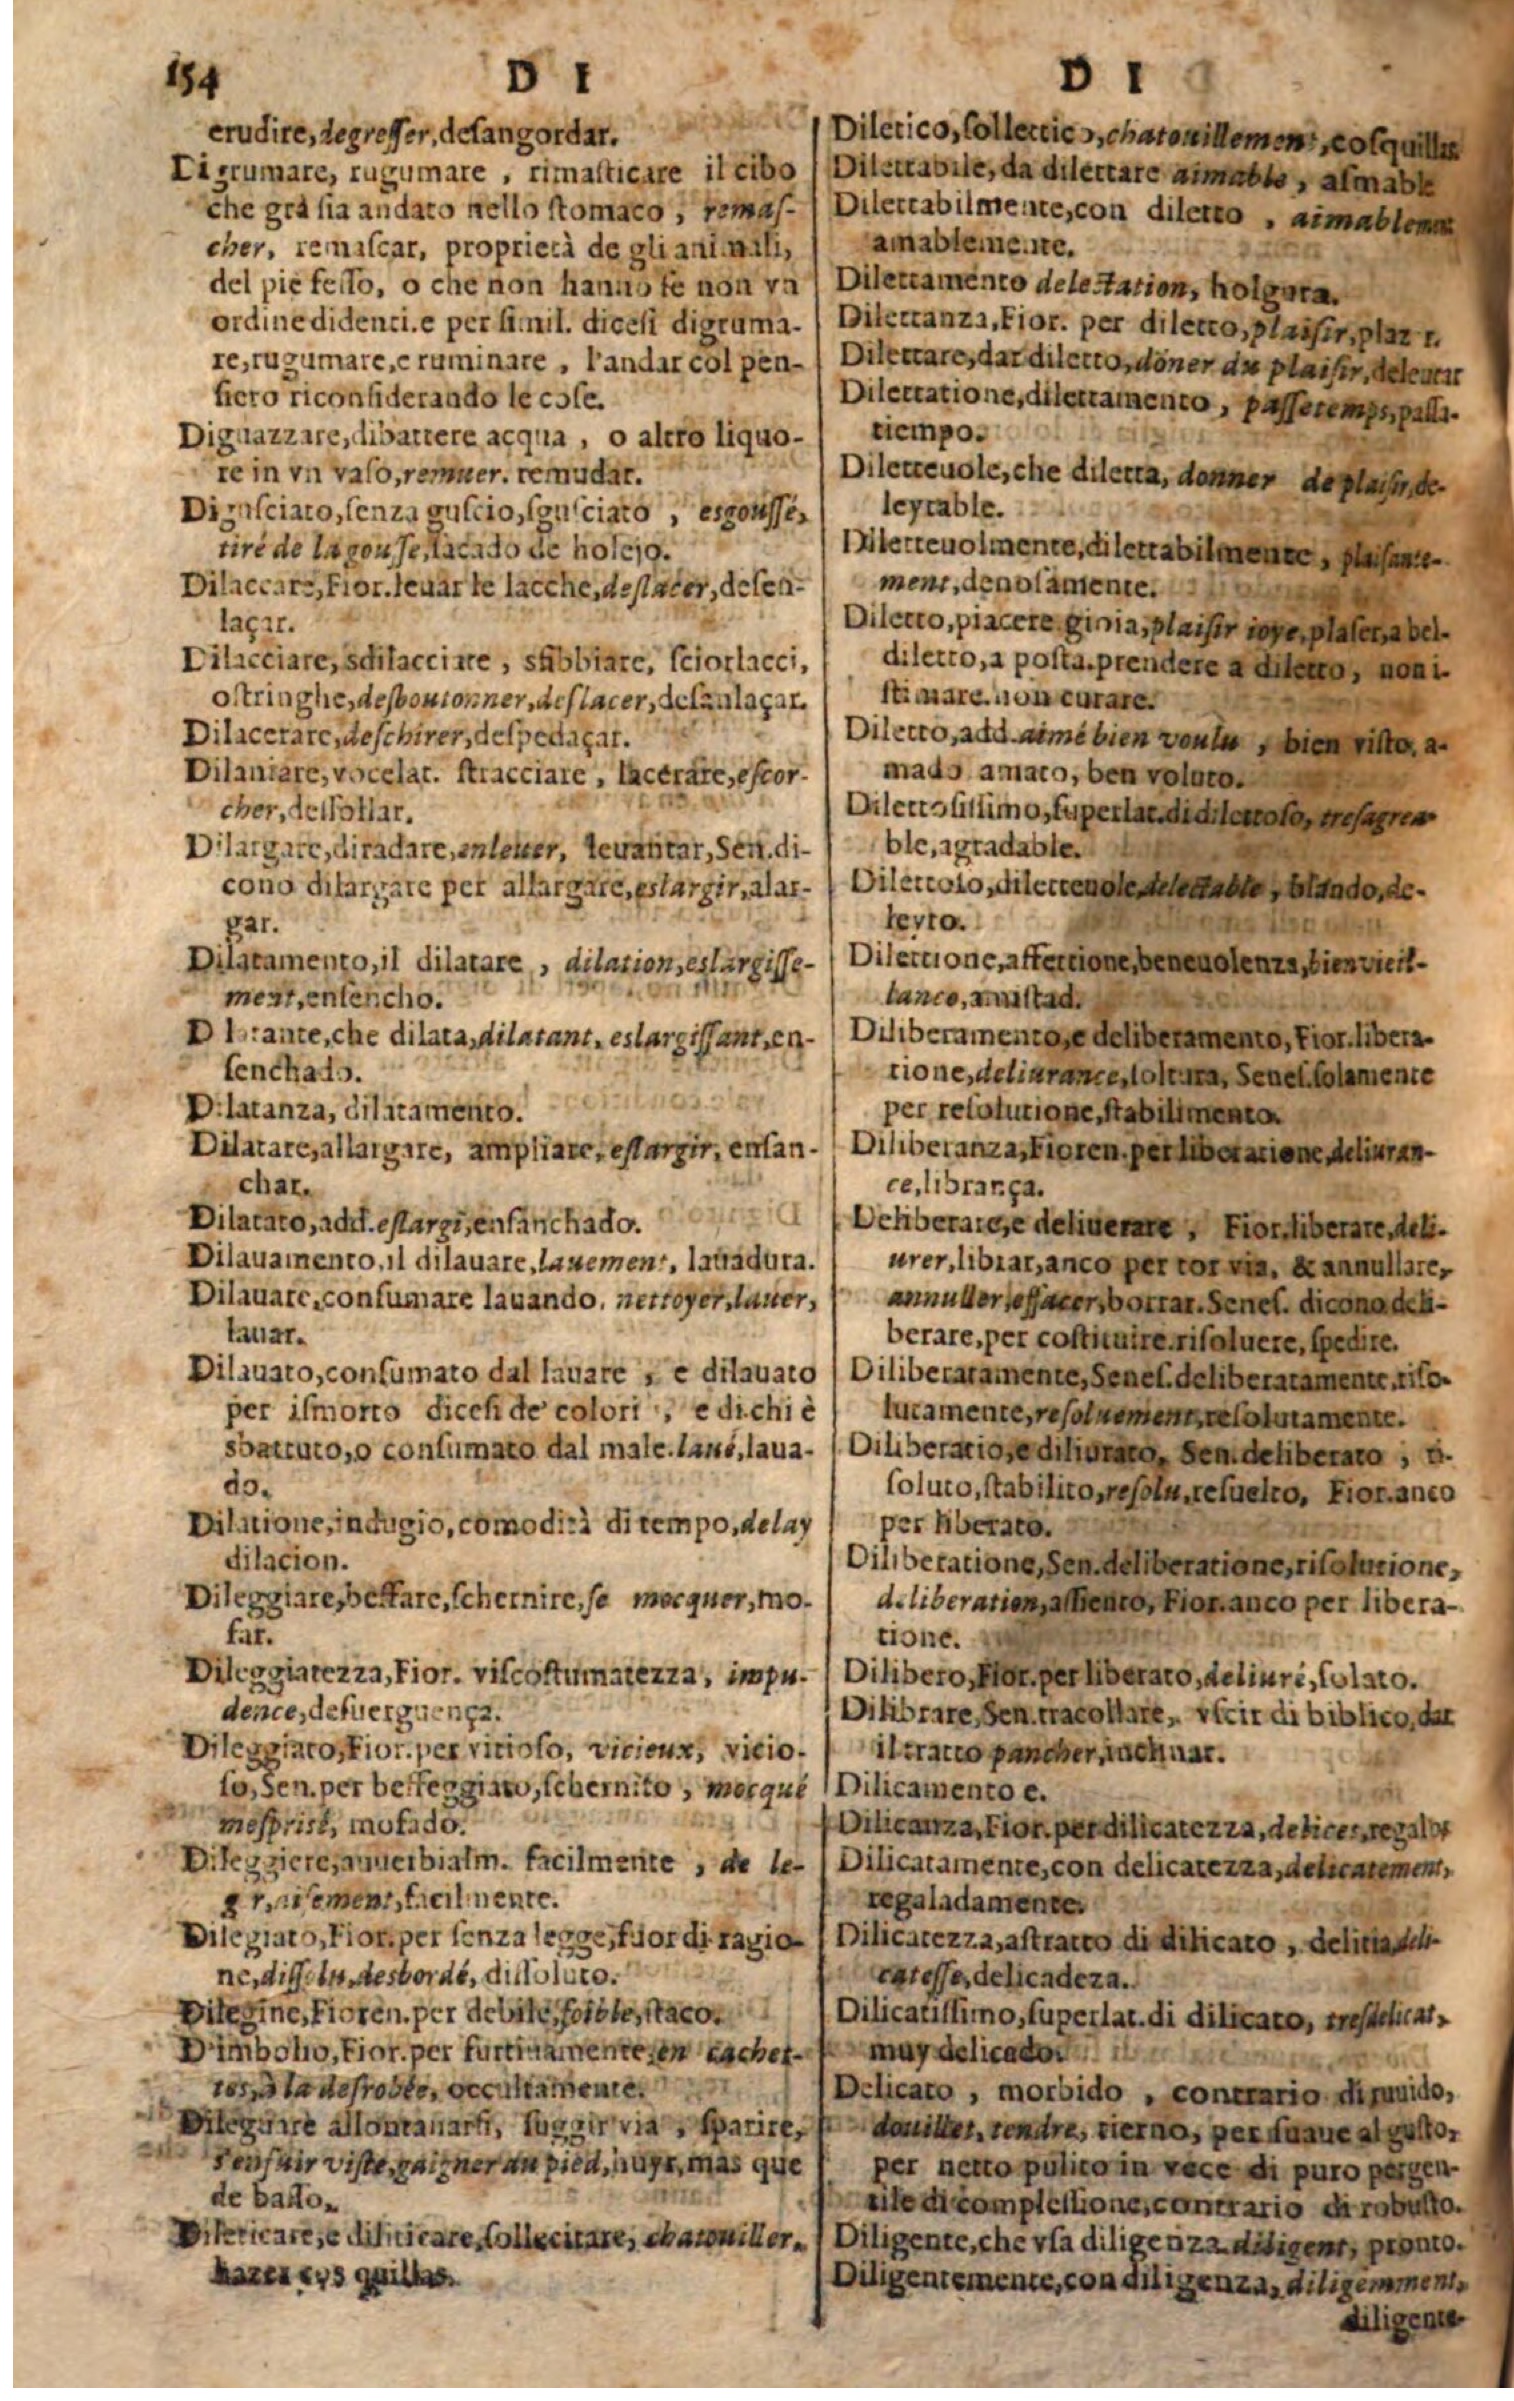 154 D I D I
erudire, degresser, desangordar.
Digrumare, rugumare, rimasticare il cibo
che già sia andato nello stomaco, remas-
cher, remascar, proprietà de gli animali,
del pie fesso, o che non hanno se non vn
ordine di denti. e per simil. dicesi digruma-
re, rugumare, e ruminare, l'andar col pen-
siero riconsiderando le cose.
Diguazzare, dibattere acqua, o altro liquo-
re in vn vaso, remuer. remudar.
Digusciato, senza guscio, sgusciato, esgoussé,
tiré de la gousse, sacado de holejo.
Dilaccare, Fior. leuar le lacche, deslacer, desen-
laçar.
Dilacciare, sdilacciare, sfibbiare, sciorlacci,
o stringhe, desboutonner, deslacer, desanlaçar.
Dilacerare, deschirer, despedaçar.
Dilaniare, voce lat. stracciare, lacerare, escor-
cher, dessollar.
Dilargare, diradare, enleuer, leuantar, Sen. di-
cono dilargare per allargare, eslargir, alar-
gar.
Dilatamento, il dilatare, dilation, eslargisse-
ment, ensencho.
Dilatante, che dilata, dilatant, eslargissant, en-
senchado.
Dilatanza, dilatamento.
Dilatare, allargare, ampliare, eslargir, ensan-
char.
Dilatato, add. eslargi, ensanchado.
Dilauamento, il dilauare, lauement, lauadura.
Dilauare, consumare lauando, nettoyer, lauer,
lauar.
Dilauato, consumato dal lauare, e dilauato
per ismorto dicesi de' colori, e di chi è
sbattuto, o consumato dal male. laué, laua-
do.
Dilatione, indugio, comodità di tempo, delay
dilacion.
Dileggiare, beffare, schernire, se mocquer, mo-
far.
Dileggiatezza, Fior. viscostumatezza, impu-
dence, desuerguença.
Dileggiato, Fior. per vitioso, vicieux, vicio-
so, Sen. per beffeggiato, schernito, mocqué
mesprisé, mofado.
Dileggiere, auuerbialm. facilmente, de le-
ger, aisement, facilmente.
Dilegiato, Fior. per senza legge, fuor di ragio-
ne, dissolu, desbordé, dissoluto.
Dilegine, Fioren. per debile, foible, flaco.
Dimbolio, Fior. per furtiuamente, en cachet-
tes, à la desrobée, occultamente.
Dileguare allontanarsi, fuggir via, sparire,
s'enfuir viste, gaigner au pied, huyr, mas que
de passo.
Dileticare, e diliticare, sollecitare, chatouiller,
hazer cys quillas.
Diletico, solletico, chatouillement, cosquillas
Dilettabile, da dilettare aimable, asmable
Dilettabilmente, con diletto, aimablement
amablemente.
Dilettamento delectation, holgura.
Dilettanza, Fior. per diletto, plaisir, plazer.
Dilettare, dar diletto, doner du plaisir, deleutar
Dilettatione, dilettamento, passetemps, passa-
tiempo.
Diletteuole, che diletta, donner de plaisir, de-
leytable.
Diletteuolmente, dilettabilmente, plaisante-
ment, denosamente.
Diletto, piacere gioia, plaisir ioye, plaser, a bel-
diletto, a posta. prendere a diletto, non i-
stimare. non curare.
Diletto, add. aimé bien voulu, bien visto, a-
mado amato, ben voluto.
Dilettosissimo, superlat. di dilettoso, tresagrea
ble, agradable.
Dilettoso, diletteuole, delectable, blando, de-
leyto.
Dilettione, affettione, beneuolenza, bienvieil-
lance, amistad.
Diliberamento, e deliberamento, Fior. libera-
tione, deliurance, soltura, Senes. solamente
per resolutione, stabilimento.
Diliberanza, Fioren. per liberatione, deliuran-
ce, librança.
Deliberare, e deliuerare, Fior. liberare, deli-
urer, librar, anco per tor via, & annullare,
annuller, effacer, borrar. Senes. dicono deli-
berare, per costituire. risoluere, spedire.
Diliberatamente, Senes. deliberatamente, riso-
lutamente, resoluement, resolutamente.
Diliberatio, e diliurato, Sen. deliberato, ri-
soluto, stabilito, resolu, resuelto, Fior. anco
per liberato.
Diliberatione, Sen. deliberatione, risolutione,
deliberation, assiento, Fior. anco per libera-
tione.
Dilibero, Fior. per liberato, deliuré, solato.
Dilibrare, Sen. tracollare, vscir di biblico, dar
il tratto pancher, inclinar.
Dilicamento e.
Dilicanza, Fior. per dilicatezza, delices, regalos
Dilicatamente, con delicatezza, delicatement,
regaladamente.
Dilicatezza, astratto di dilicato, delitia, deli-
catesse, delicadeza.
Dilicatissimo, superlat. di dilicato, tresdelicat,
muy delicado.
Delicato, morbido, contrario di ruuido,
douillet, tendre, tierno, per suaue al gusto,
per netto pulito in vece di puro per gen-
tile di complessione, contrario di robusto.
Diligente, che vsa diligenza. diligent, pronto.
Diligentemente, con diligenza, diligemment,
diligente-